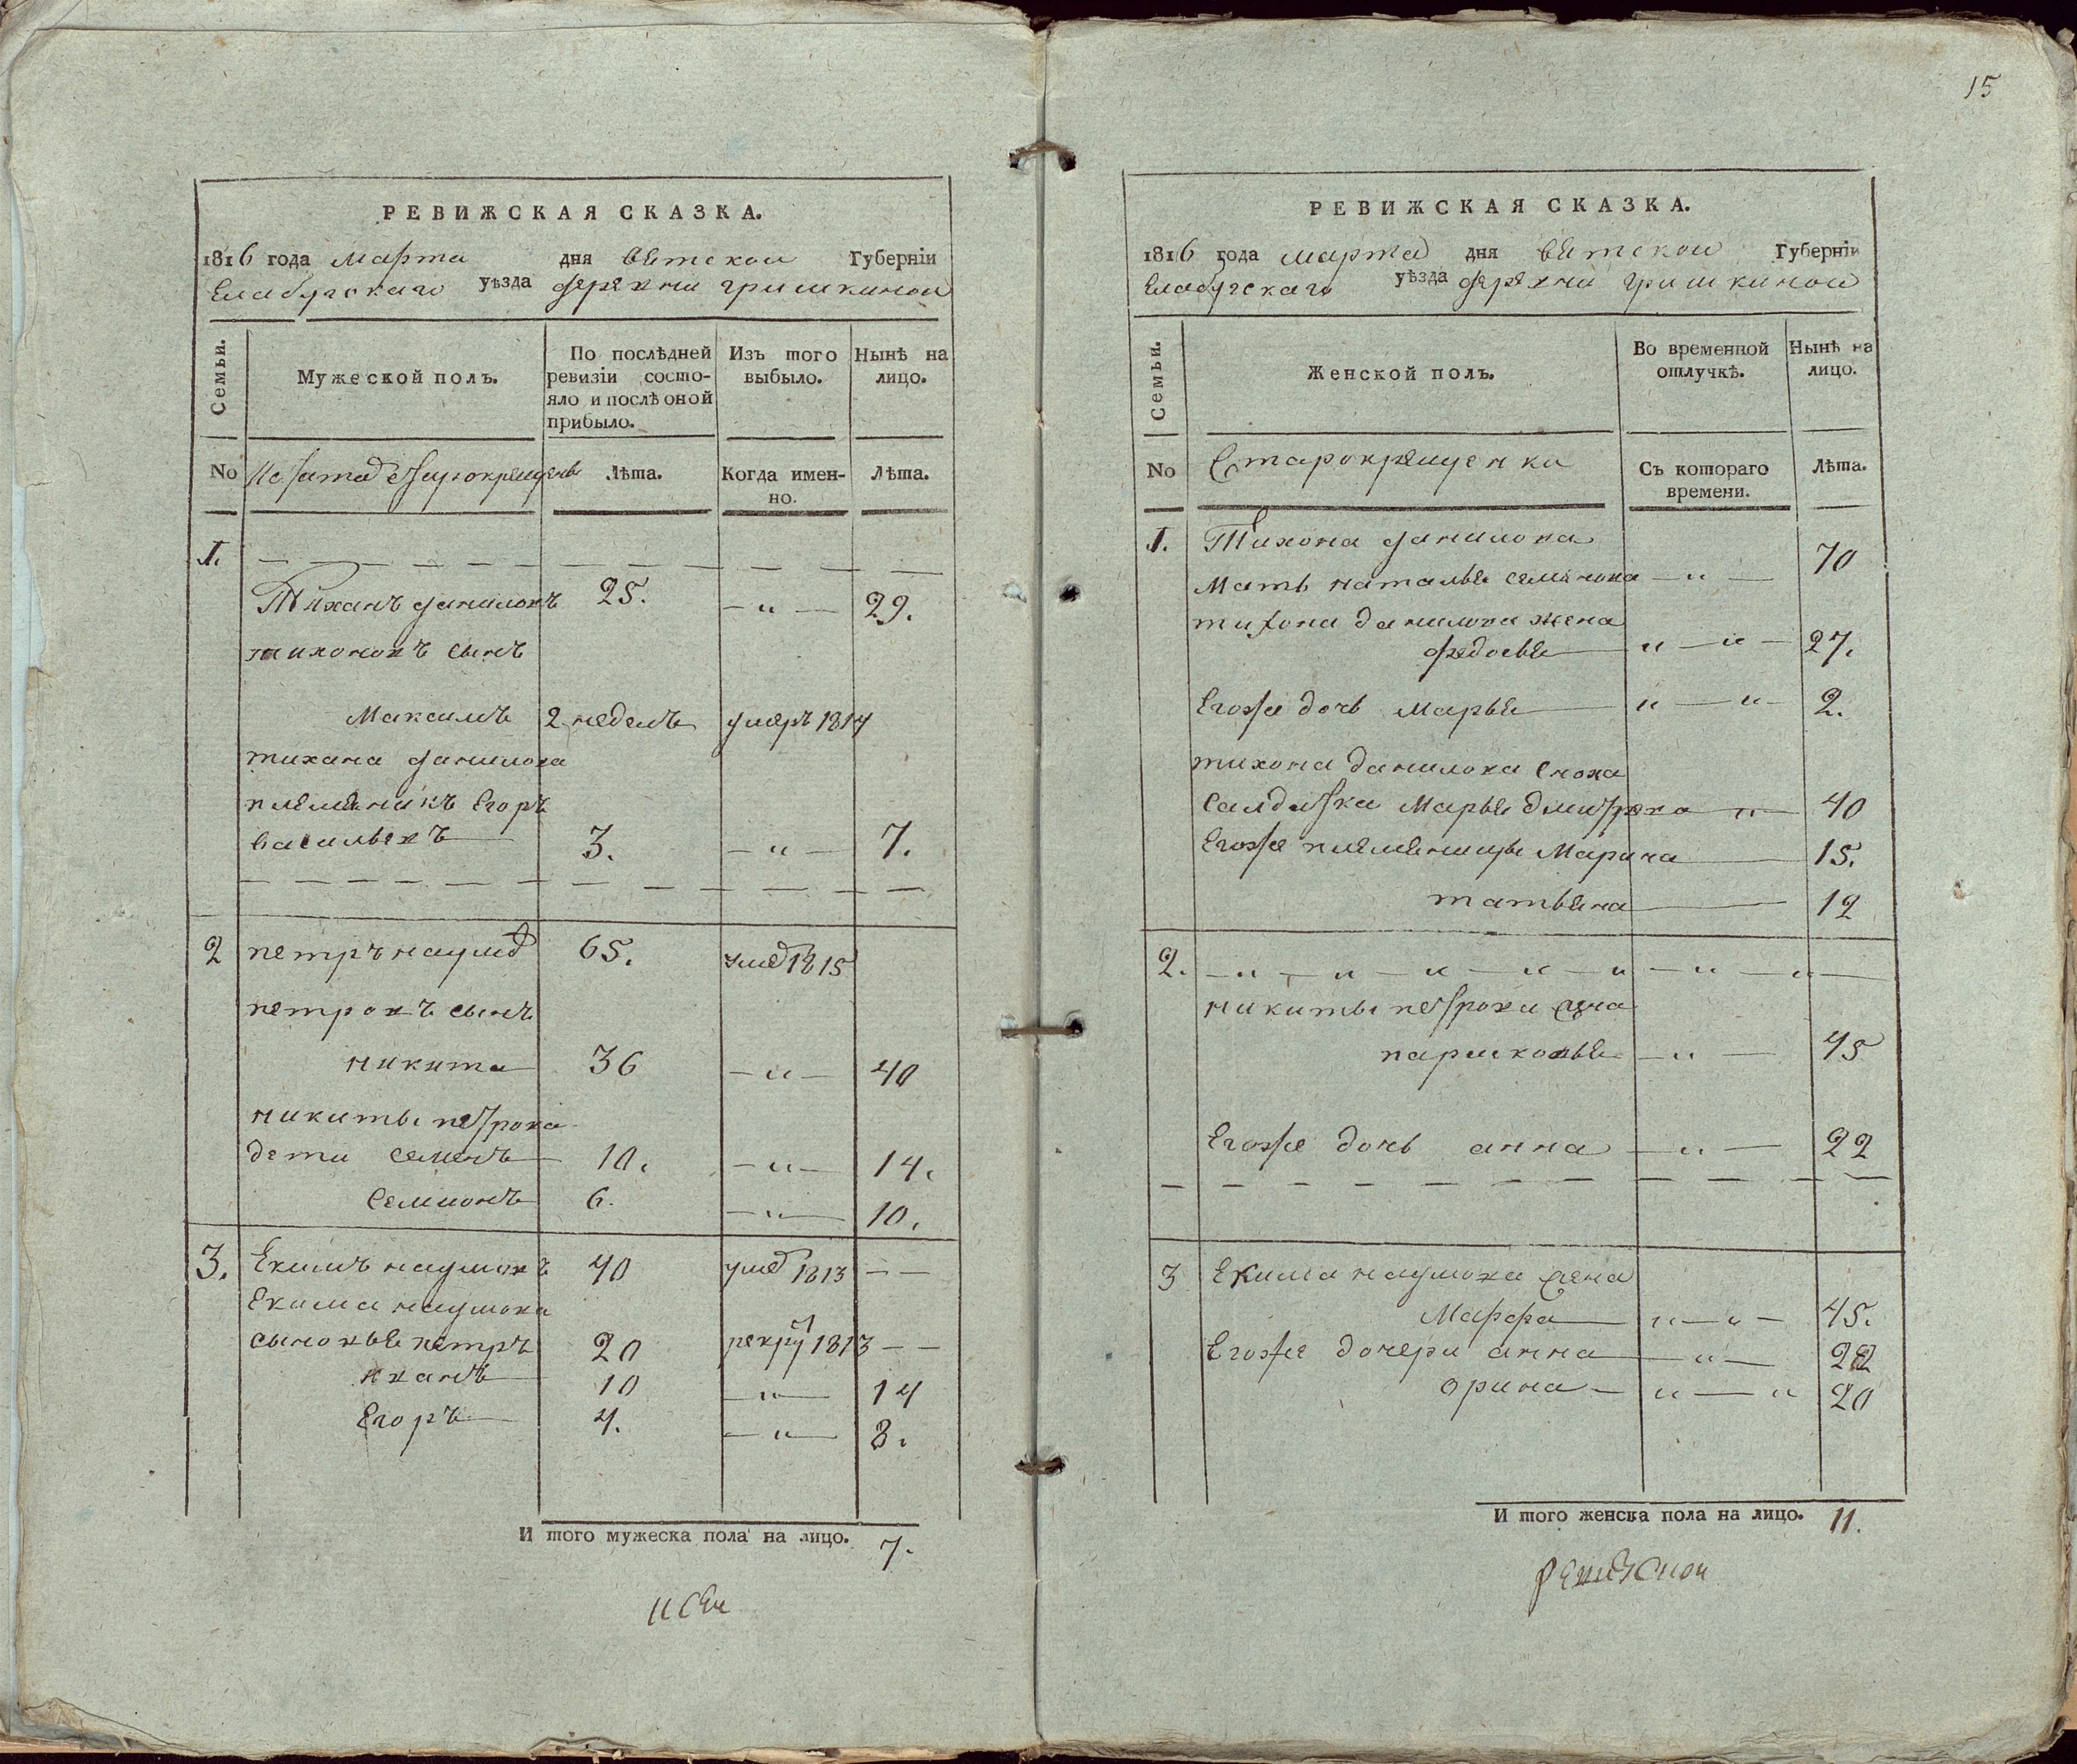 15
РЕВИЖСКАЯ СКАЗКА.
1816 года марта дня вятской Губернiи
Елабугскаго уѣзда деревни гришкиной
Семьи.
Мужеской полъ.
По послѣдней
ревизiи состо-
яло и послѣ оной
прибыло.
Изъ того
выбыло.
Нынѣ на
лицо.
No
Лѣта.
Когда имен-
но.
Лѣта.
1.
Тиханъ даниловъ 25. — „ — 29.
тихоновъ сынъ
Максимъ 2 неделъ умеръ 1814
тихана данилова
племяникъ Егоръ
васильевъ 3. — „ — 7.
2 петръ наумо 65. уме 1815
петровъ сынъ
никита 36 — „ — 40
никиты петрова
дети семенъ 10. — „ — 14.
Семионъ 6. — „ — 10.
3. Екимъ наумовъ 40 уме 1813 — —
Екима наумова
сыновья петръ 20 рекру 1813 — —
иванъ 10 — „ — 14
Егоръ 4. — „ — 8.
И того мужеска пола на лицо. 7.
РЕВИЖСКАЯ СКАЗКА.
1816 года марта дня вятской Губернiи
Елабугскаго уѣзда деревни гришкиной
Семьи.
Женской полъ.
Во временной
отлучкѣ.
Нынѣ на
лицо.
No
Старокрещенка
Съ котораго
времени.
Лѣта.
1. Тихона данилова
Мать наталья семенова — „ — 70
тихона данилова жена
федосья „ — „ — 27.
Егоже дочь марья „ — „ — 2.
тихона данилова сноха
Салдатка Марья дмитрева „ — 40
Егоже племеницы Марина 15.
татьяна 12
2. — „ — „ — „ — „ — „ — „ — „ —
никиты петрова жена
парасковья — „ — 45
Егоже дочь анна — „ — 22
3 Екима наумова жена
Марфа „ — „ — 45.
Егоже дочери анна — „ — 22
орина — „ — „ 20
И того женска пола на лицо. 11.